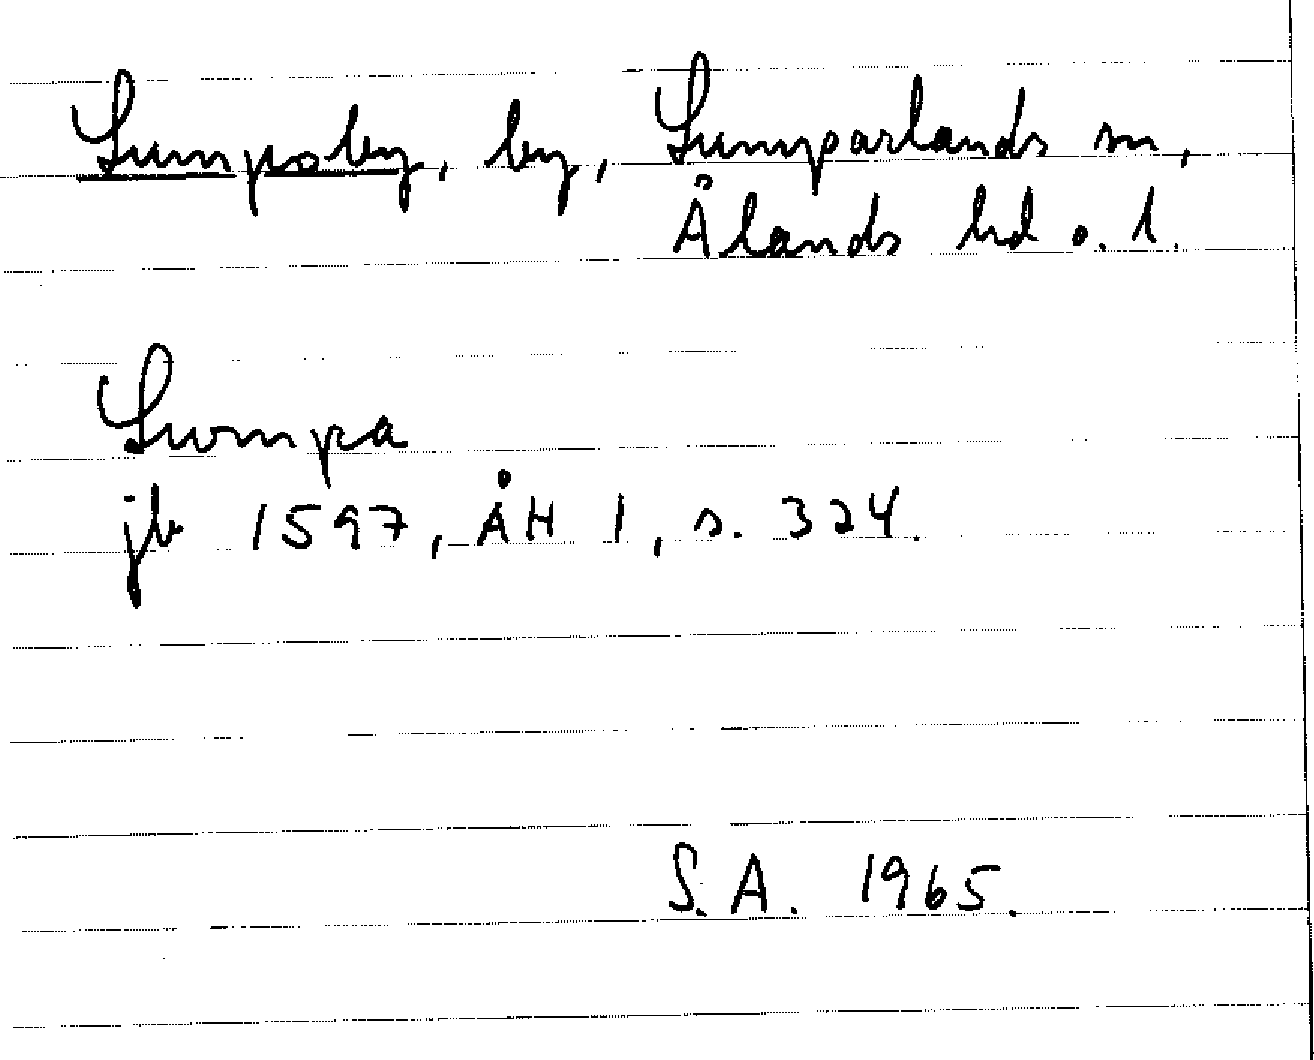 Lumpoby, by, Lumparlands sn,
Ålands hd o. l.
Lumpa
jb 1597, ÅH 1, s. 324.
S.A. 1965.